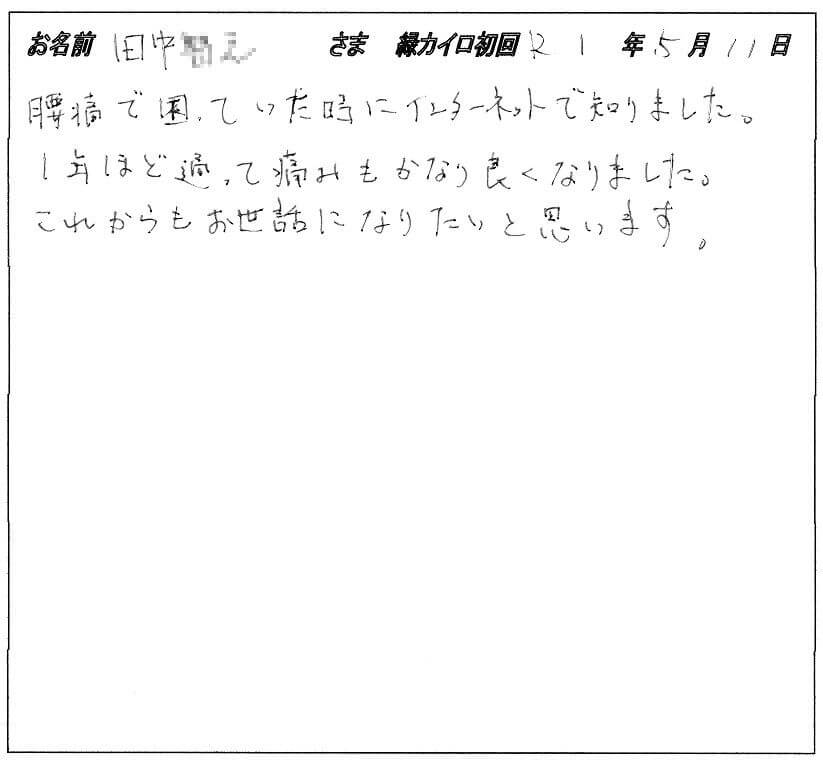 お名前 田中 さま 縁カイロ初回 R 1 年 5 月 11 日
腰痛で困っていた時にインターネットで知りました。
1年ほど通って痛みもかなり良くなりました。
これからもお世話になりたいと思います。